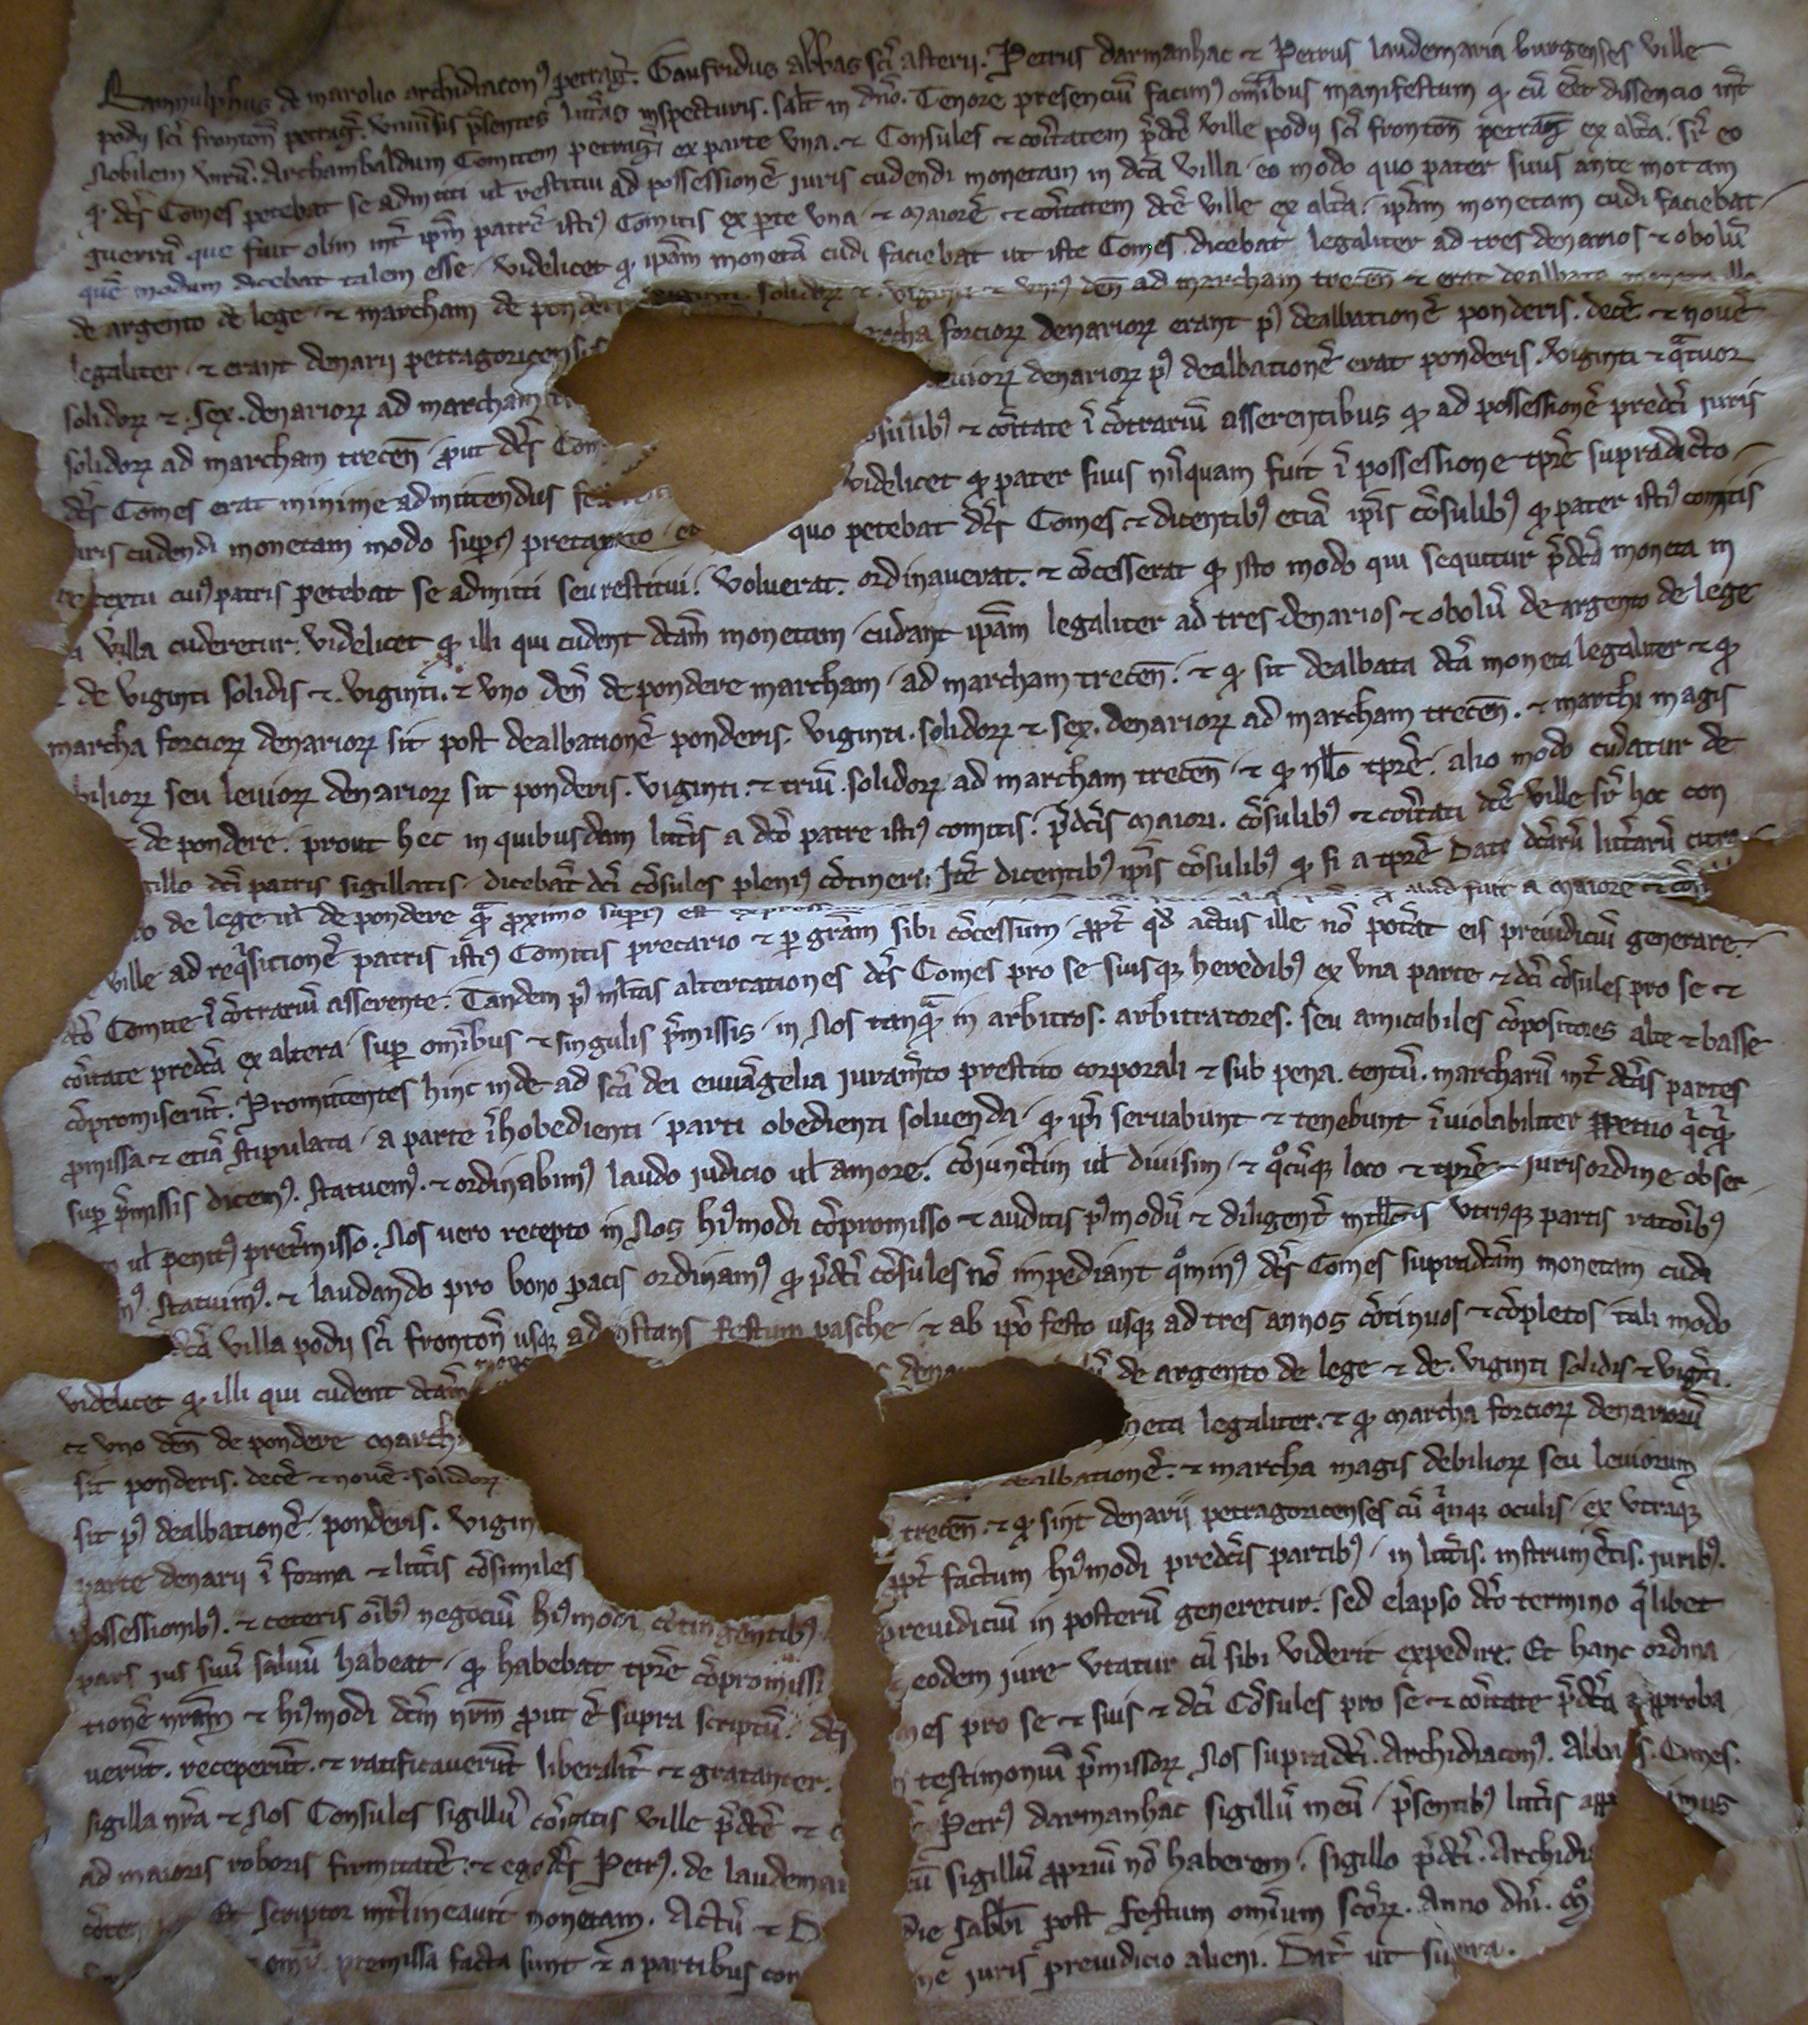 Ramnulphus de marolio archidiacon9 petrag̃. Gaufridus abbas sc̃i asterij. Petrus darmanhac et Petrus laudemaria burgenses ville
podij sc̃i fronton̄ petrag̃. vniũsis p̃sentes litt̃as inspecturis. salt̃ in dn̄o. Tenore presenciũ facim9 om̃ibus manifestum ꝙ cũ eẽt dissencio int̃
Nobilem virũ. Archambaldum Comitem petrag̃ ex parte vna. et Consules et co͠itatem p̃dc̃e ville podij sc̃i fronton̄ petrag̃ ex alt̃a. sr̃ eo
ꝙ dc̃s Comes petebat se admitti ul̃ restitui ad possessionẽ iuris cudendi monetam in dc̃a villa. eo modo quo pater suus ante motam
guerrã que fuit olim int̃ ip̃m patrẽ isti9 Comitis ex pte vna et maiorẽ et co͠itatem dc̃e ville ex alt̃a. ip̃am monetam cudi faciebat
quẽ modum dicebat talem esse. videlicet ꝙ ip̃am monetã cudi faciebat ut iste Comes dicebat legaliter ad tres denarios et obolũ
de argento de lege et marcham de ponder solidoꝝ et viginti et vni9 den̄ ad marcham trecen̄ et erat dealbata
legaliter et erant denarij petragoricensis forcioꝝ denarioꝝ erant p9 dealbationẽ ponderis. decẽ et nouẽ
solidoꝝ et sex. denarioꝝ ad marcham leuioꝝ denarioꝝ p9 dealbationẽ erat ponderis. viginti et q̃tuor
solidoꝝ ad marcham trecen̄ prout dc̃s Com et co͠itate ĩ cõtrariũ asserentibus ꝙ ad possessionẽ predc̃i iuris
dc̃s Comes erat minime admittendus videlicet ꝙ pater suus nũquam fuit ĩ possessione tpr̃e supradicto
iuris cudendi monetam modo sup9 pretaxato et quo petebat dc̃s Comes et dicentib9 etiã ip̃is cõsulib9 ꝙ pater isti9 comitis
textu cui9 patris petebat se admitti seu restitui. voluerat. ordinauerat. et cõcesserat ꝙ isto modo qui sequitur p̃dc̃a moneta in
villa cuderetur. videlicet ꝙ illi qui cudent dc̃am monetam cudant ip̃am legaliter ad tres denarios et obolũ de argento de lege
de viginti solidis et. viginti. et vno den̄ de pondere marcham ad marcham trecen̄. et ꝙ sit dealbata dc̃a moneta legaliter et ꝙ
marcha forcioꝝ denarioꝝ sit post dealbationẽ ponderis. viginti. solidoꝝ et. sex. denarioꝝ ad marcham trecen̄. et marcha magis
bilioꝝ seu leuioꝝ denarioꝝ sit ponderis. viginti. et triũ. solidoꝝ ad marcham trecen̄ et ꝙ nllo tpr̃e. alio modo cudatur de
de pondere. prout hec in quibusdam litt̃is a dc̃o patre isti9 comitis. p̃dc̃is maiori. cõsulib9 et co͠itati dc̃e ville sr̃ hoc con
gillo dc̃i patris sigillatis. dicebãt dc̃i cõsules pleni9 cõtineri. Itẽ dicentib9 ip̃is cõsulib9 ꝙ si a tpr̃e Date dc̃arũ litt̃arũ citra
de lege ul̃ de pondere q̃ proximo sup9 est fuit a maiore et
ville ad req̃sitionẽ patris isti9 Comitis precario et p gr̃am sibi cõcessum. ꝓpt̃ qd̃ actus ille nõ pot̃at eis preiudiciũ generare.
dc̃o Comite ĩ cõtrariũ asserente. Tandem p9 ml̃tas altercationes dc̃s Comes pro se suisqꝫ heredib9 ex vna parte et dc̃i cõsules pro se et
co͠itate predc̃a ex altera super om̃ibus et singulis p̃missis in Nos tanq̃ in arbitros. arbitratores. seu amicabiles cõpositores alte et basse
cõpromiserũt. Promittentes hinc inde ad sc̃a dei euuãgelia iuram̃to prestito corporali et sub pena. centũ. marcharũ int̃ dc̃as partes
promissa et etiã stipulata. a parte ĩhobedienti parti obedienti soluenda ꝙ ip̃i seruabunt et tenebunt ĩuiolabiliter ꝑpetuo q̃cq̃
super p̃missis dicem9. statuem9. et ordinabim9 laudo iudicio ul̃ amore. cõiunctim ul̃ diuisim et q̊cũqꝫ loco et tpr̃e iuris ordine obser
ul̃ penit9 pret̃misso. Nos uero recepto in Nos hi9modi cõpromisso et auditis p9modũ et diligent̃ intll̃ctis vtri9qꝫ partis ratõib9
statuim9. et laudando pro bono pacis ordinam9 ꝙ p̃dc̃i cõsules nõ impediant q̊min9 dc̃s Comes supradc̃am monetam cudi
dc̃a villa podij sc̃i fronton̄ usqꝫ ad instans festum pasche et ab ip̃o festo usqꝫ ad tres annos cõtinuos et cõpletos tali modo
videlicet ꝙ illi qui cudent dc̃am de argento de lege et de. viginti solidis et vigĩti.
et vno den̄ de pondere march neta legaliter. et ꝙ marcha forcioꝝ denariorũ
sit ponderis. decẽ et nouẽ. solidoꝝ dealbationẽ. et marcha magis debilioꝝ seu leuiorum
sit p9 dealbationẽ. ponderis. vigin trecen̄. et ꝙ sint denarij petragoricenses cũ q̃nqꝫ oculis ex vtraqꝫ
parte denarij ĩ forma et litt̃is cõsimiles ꝓpt̃ factum hi9modi predc̃is partib9 in litt̃is. instrumẽtis. iurib9.
possessionib9. et ceteris oĩb9 negociũ hi9modi cõtingentib9 preiudiciũ in posterũ generetur. sed elapso dc̃o termino q̃libet
pars ius suũ saluũ habeat. ꝙ habebat tpr̃e cõpromissi eodem iure vtatur cũ sibi viderit expedire. Et hanc ordina
tionẽ nr̃am et hi9modi dc̃m nr̃m prout ẽ supra scriptũ. dc̃s mes pro se et suis et dc̃i Cõsules pro se et co͠itate p̃dc̃a approba
uerũt. receperũt. et ratificauerũt liberalit̃ et gratanter. testimoniũ p̃missoꝝ Nos supradc̃i. Archidiacon9. Abbas. Comes.
sigilla nr̃a et Nos Consules sigillũ co͠itatis ville p̃dc̃e et Petr9 darmanhac sigillũ meũ. p̃sentib9 litt̃is app
ad maioris roboris firmitatẽ. et ego dc̃s Petr9. de laudemar cũ sigillũ ꝓpriũ nõ haberem. sigillo p̃dc̃i. Archidi
Et scriptor int̃lineauit monetam. Actũ et D die sabb̃i post festum omnium sc̃oꝝ. Anno dn̄i. Mº
premissa facta sunt et a partibus con ne iuris preiudicio alieni. Dat̃ ut supra.